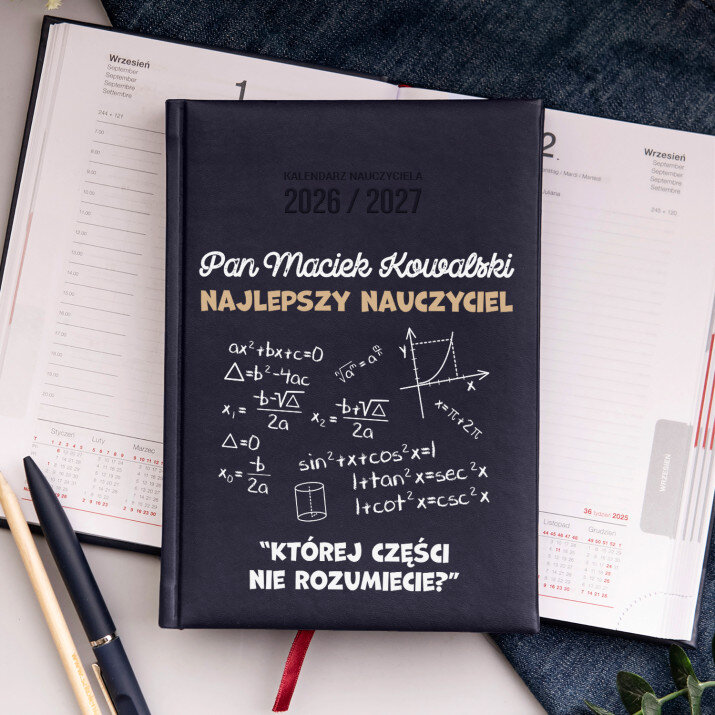 Wrzesień
September
September
Septembre
Settembre
1
244 + 121
7.00
8.00
9.00
10.00
11.00
12.00
13.00
14.00
15.00
Styczeń
Luty
Marzec
2
Wrzesień
September
Septembre
Settembre
245 + 120
Juliana
WRZESIEŃ
36 tydzień 2025
Listopad
Grudzień
KALENDARZ NAUCZYCIELA
2026 / 2027
Pan Maciek Kowalski
NAJLEPSZY NAUCZYCIEL
ax²+bx+c=0
Δ=b²-4ac
x₁= -b-√Δ / 2a
x₂= -b+√Δ / 2a
Δ=0
x₀= -b / 2a
y
x
x=π+2π
sin²+x+cos²x=1
1+tan²x=sec²x
1+cot²x=csc²x
"KTÓREJ CZĘŚCI
NIE ROZUMIECIE?"